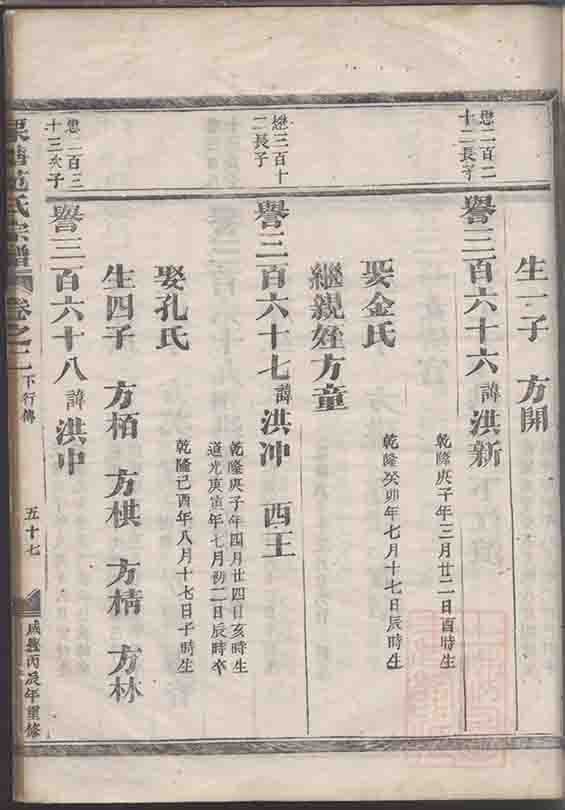 生一子 方開
懋二百二十二長子
譽三百六十六諱洪新
乾隆庚子年三月廿二日酉時生
娶金氏
乾隆癸卯年七月十七日辰時生
繼親姪方童
懋三百十二長子
譽三百六十七諱洪冲 西王
乾隆庚子年四月廿四日亥時生
道光庚寅年七月初二日辰時卒
娶孔氏
乾隆己酉年八月十七日子時生
生四子 方栢 方棋 方精 方林
懋二百三十三次子
譽三百六十八諱洪中
范氏宗譜 卷之二 下行傳 五十七 咸豐丙辰年重修